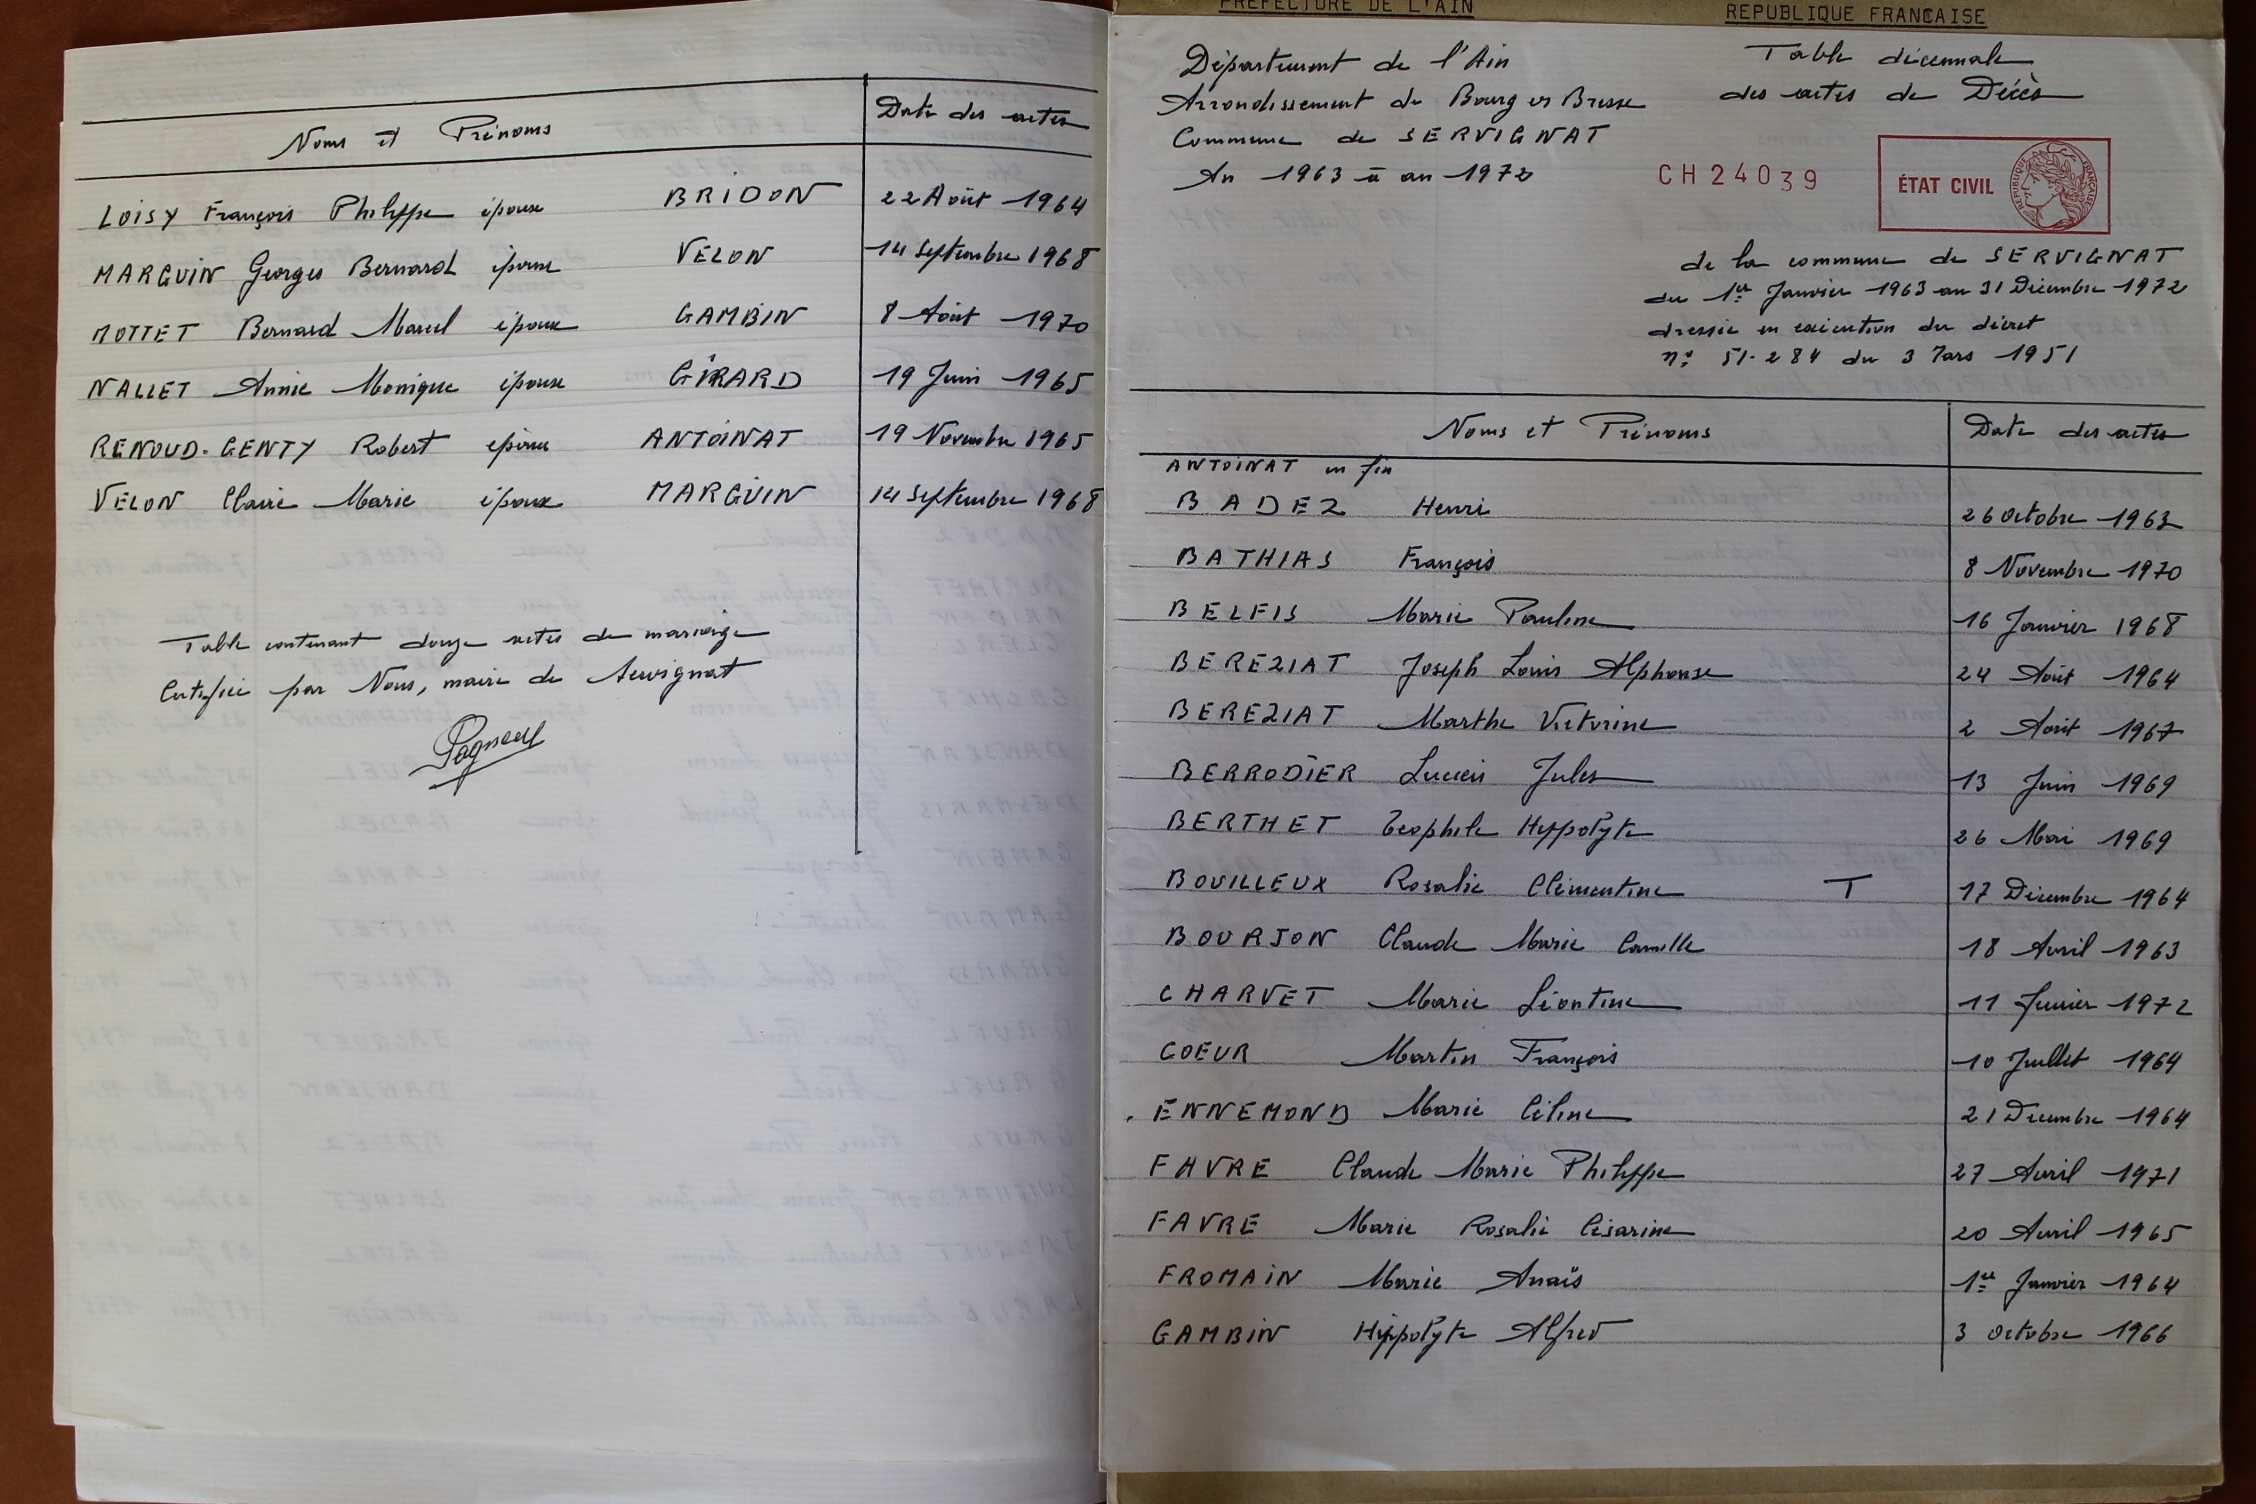 Noms et Prénoms Date des actes
LOISY François Philippe époux BRIDON 22 Août 1964
MARGUIN Georges Bernard époux VELON 14 Septembre 1968
MOTTET Bernard Marcel époux GAMBIN 8 Août 1970
NALLET Annie Monique épouse GIRARD 19 Juin 1965
RENOUD-GENTY Robert époux ANTOINAT 19 Novembre 1965
VELON Claire Marie épouse MARGUIN 14 Septembre 1968
Table contenant douze actes de mariage
Certifiée par Nous, maire de Servignat
PREFECTURE DE L'AIN
REPUBLIQUE FRANCAISE
Département de l'Ain
Arrondissement de Bourg en Bresse
Commune de SERVIGNAT
An 1963 à an 1972
Table décennale
des actes de Décès
CH24039
ÉTAT CIVIL
RÉPUBLIQUE FRANÇAISE
de la commune de SERVIGNAT
du 1er Janvier 1963 au 31 Décembre 1972
dressée en exécution du décret
n° 51-284 du 3 Mars 1951
Noms et Prénoms Date des actes
ANTOINAT en fin
BADEZ Henri 26 octobre 1963
BATHIAS François 8 Novembre 1970
BELFIS Marie Pauline 16 Janvier 1968
BEREZIAT Joseph Louis Alphonse 24 Août 1964
BEREZIAT Marthe Victorine 2 Août 1967
BERRODIER Lucien Jules 13 Juin 1969
BERTHET Teophile Hippolyte 26 Mai 1969
BOUILLEUX Rosalie Clémentine T 17 Décembre 1964
BOURJON Claude Marie Camille 18 Avril 1963
CHARVET Marie Léontine 11 Février 1972
COEUR Martin François 10 Juillet 1964
ENNEMOND Marie Céline 21 Décembre 1964
FAVRE Claude Marie Philippe 27 Avril 1971
FAVRE Marie Rosalie Césarine 20 Avril 1965
FROMAIN Marie Anaïs 1er Janvier 1964
GAMBIN Hippolyte Alfred 3 octobre 1966